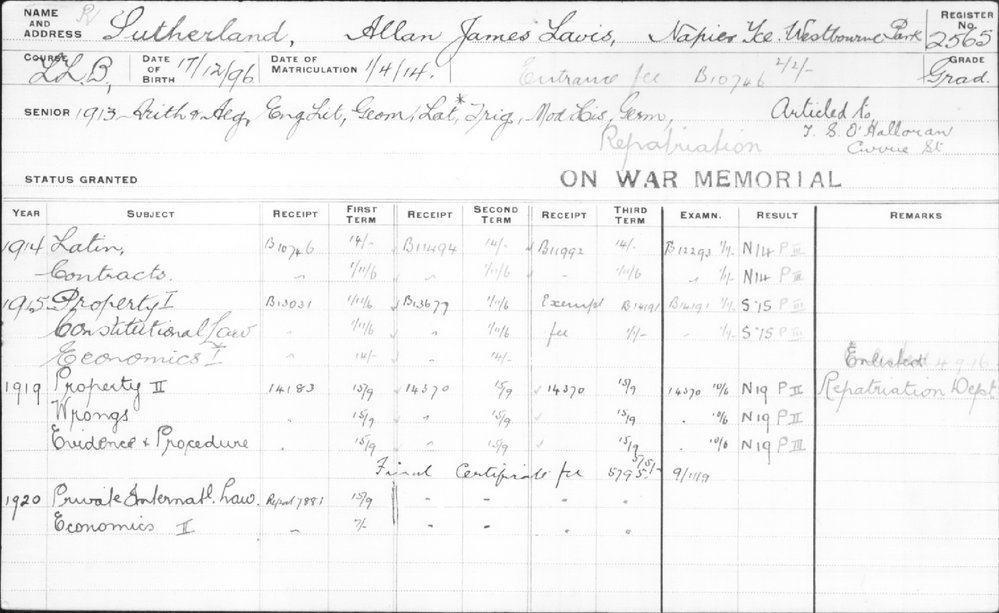 NAME AND ADDRESS R Sutherland, Allan James Lavis, Napier Tce. Westbourne Park REGISTER No. 2565
COURSE LL.B, DATE OF BIRTH 17/12/96 DATE OF MATRICULATION 1/4/14. Entrance fee B10746 2/2/- GRADE Grad.
SENIOR 1913 - Arith & Alg, Eng Lit, Geom, Lat*, Trig, Mod His, Germ, Articled to
T. S. O'Halloran
Repatriation Currie St
STATUS GRANTED ON WAR MEMORIAL
YEAR SUBJECT RECEIPT FIRST TERM RECEIPT SECOND TERM RECEIPT THIRD TERM EXAMN. RESULT REMARKS
1914 Latin, B10746 14/- B11494 14/- B11992 14/- B12293 1/1/- N14 P III
Contracts. " 1/11/6 " 1/11/6 " 1/11/6 " 1/1/- N14 P III
1915 Property I B13031 1/11/6 B13677 1/11/6 Exempt B14191 B14191 1/1/- S'15 P III
Constitutional Law " 1/11/6 " 1/11/6 fee 1/1/- " 1/1/- S'15 P III
Economics I " 14/- " 14/- Enlisted 4.9.16
1919 Property II 14183 15/9 14370 15/9 14370 15/9 14370 10/6 N19 P II Repatriation Dept
Wrongs " 15/9 " 15/9 " 15/9 " 10/6 N19 P II
Evidence & Procedure " 15/9 " 15/9 " 15/9 " 10/6 N19 P III
Final Certificate fee 5795 5/5/- 9/11/9
1920 Private Internatl. Law. Repat 7881 15/9 " " " "
Economics II " 7/- " " " "